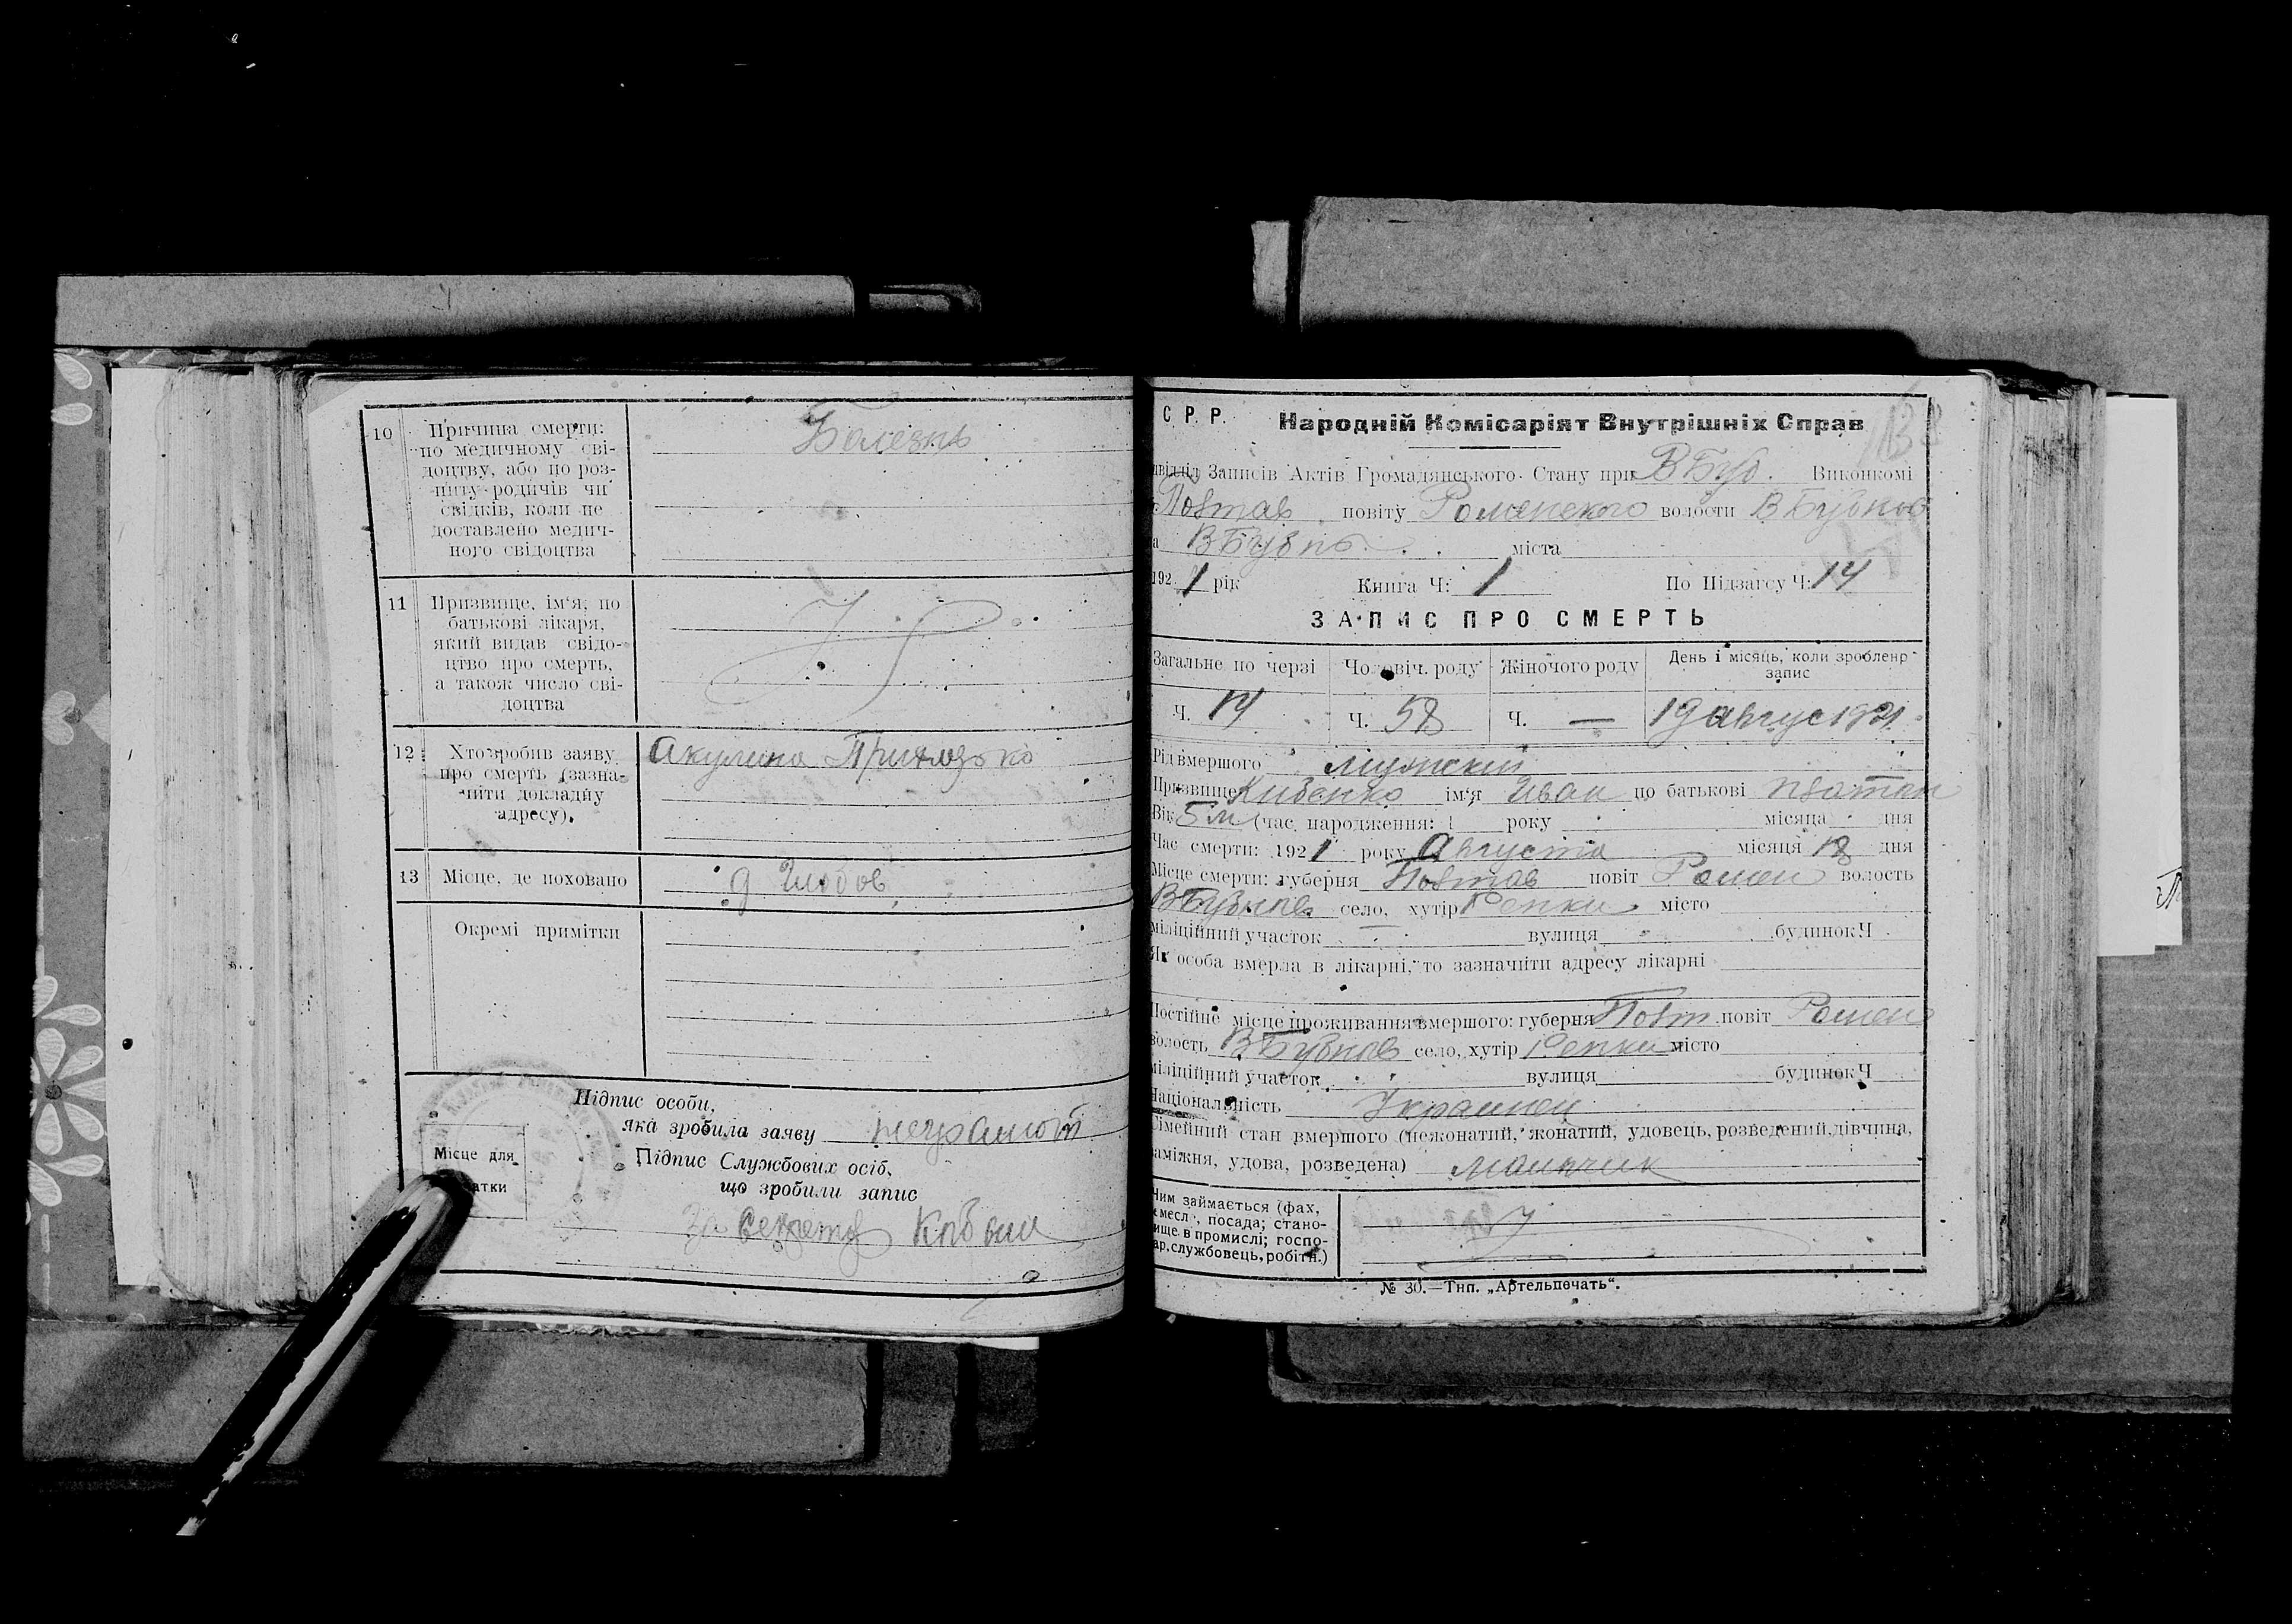 10 Причина смерти:
по медичному сві-
доцтву, або по роз-
питу родичів чи
свідків, коли не
доставлено медич-
ного свідоцтва
Болезнь
11 Призвище, ім'я, по
батькові лікаря,
який видав свідо-
цтво про смерть,
а також число сві-
доцтва
12 Хто зробив заяву
про смерть (зазна-
чити докладну
адресу).
Акулина
13 Місце, де поховано
Окремі примітки
Підпис особи,
яка зробила заяву неграмот
Місце для
Підпис Службових осіб,
що зробили запис
За секрета
С. Р. Р. Народній Комісаріят Внутрішніх Справ
Записів Актів Громадянського Стану при В Буб. Виконкомі
Полтав повіту Роменского волости В Бубнов
В Бубн міста
1921 рік Книга Ч: 1 По Підзагсу Ч: 14
ЗАПИС ПРО СМЕРТЬ
Загальне по черзі Чоловіч. роду Жіночого роду День і місяць, коли зроблено
запис
Ч. 14 Ч. 58 Ч. — 19 Август 1921
Рід вмершого мужский
Призвище Кибенко ім'я Иван по батькові Платон
Вік 5 м (час народження: 1 року місяца дня
Час смерти: 1921 року Августа місяця 18 дня
Місце смерти: губерня Полтав повіт Ромен волость
В Бубнов село, хутір Репки місто
міліційний участок вулиця будинок Ч
Як особа вмерла в лікарні, то зазначити адресу лікарні
Постійне місце проживання вмершого: губерня Полт повіт Ромен
волость В Бубнов село, хутір Репки місто
міліційний участок вулиця будинок Ч
Національність Украинец
Сімейний стан вмершого (нежонатий, жонатий, удовець, розведений, дівчина,
заміжня, удова, розведена) мальчик
Чим займається (фах,
ремесл., посада; стано-
вище в промислі; госпо-
дар, службовець, робітн.)
№ 30.—Тип. „Артельпечать“.